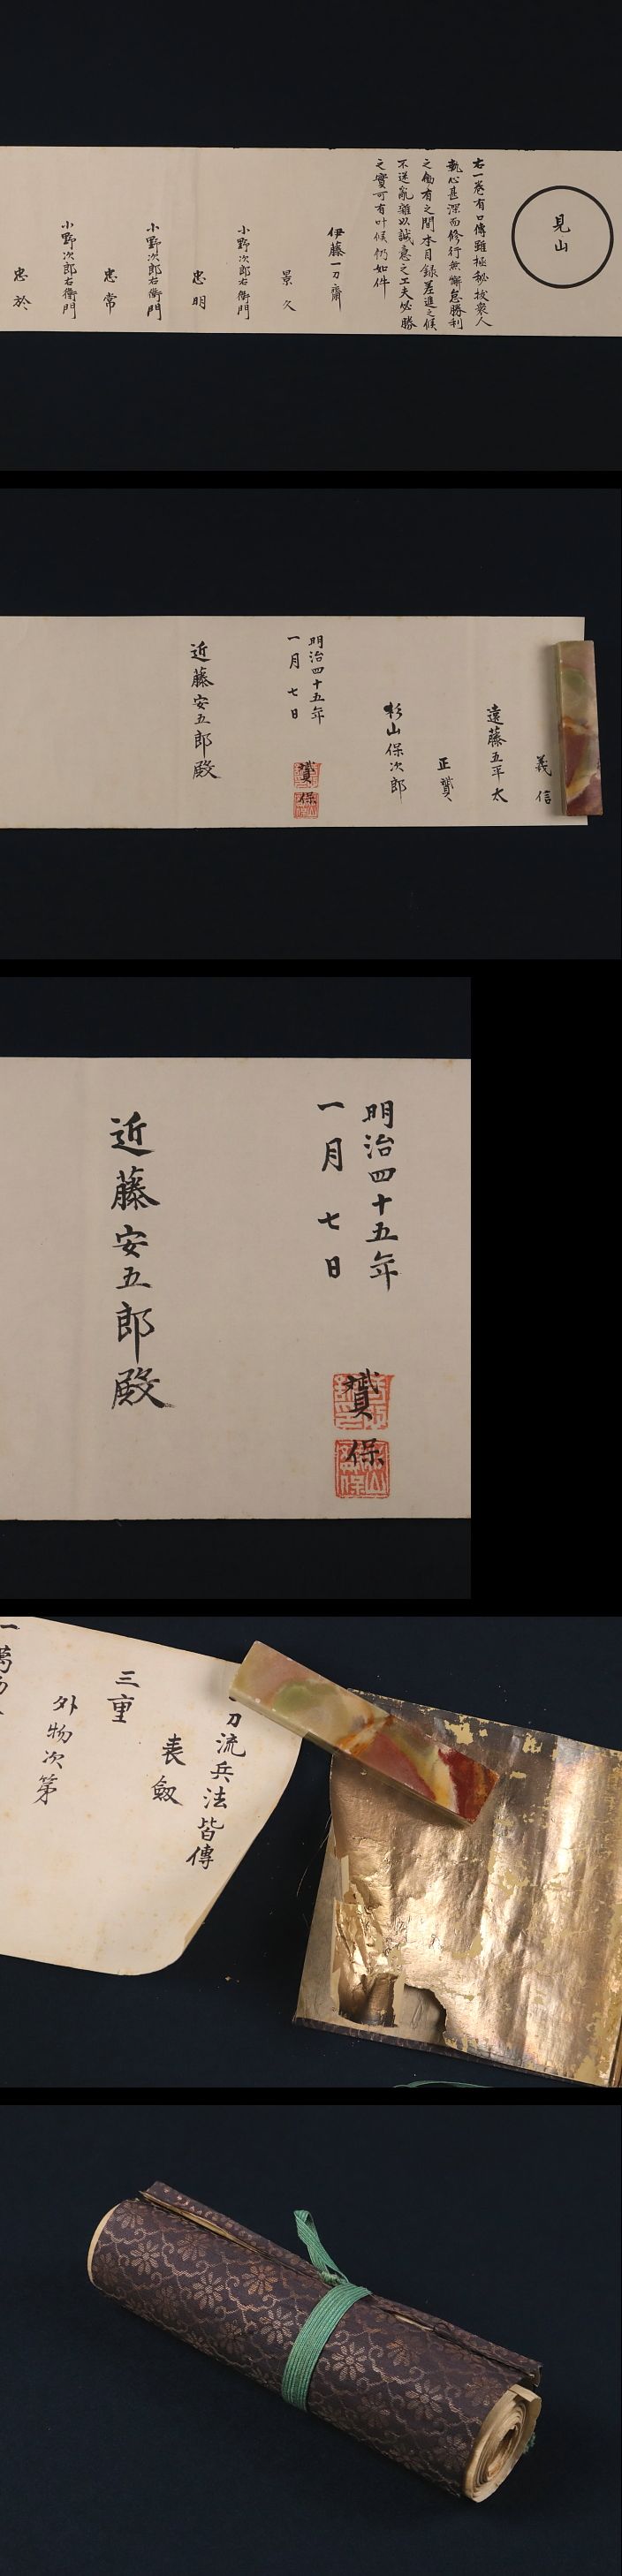 見山
右一巻有口傳雖極秘拔衆人
執心甚深而修行無懈怠勝利
之働有之間本目録差進之候
不逆亂雑以誠意之工夫必勝
之實可有叶候仍如件
伊藤一刀齋
景久
小野次郎右衛門
忠明
小野次郎右衛門
忠常
小野次郎右衛門
忠於
義信
遠藤五平太
正贇
杉山保次郎
明治四十五年
一月七日
贇保
近藤安五郎殿
明治四十五年
一月七日
贇保
近藤安五郎殿
刀流兵法皆傳
表劔
三重
外物次第
一